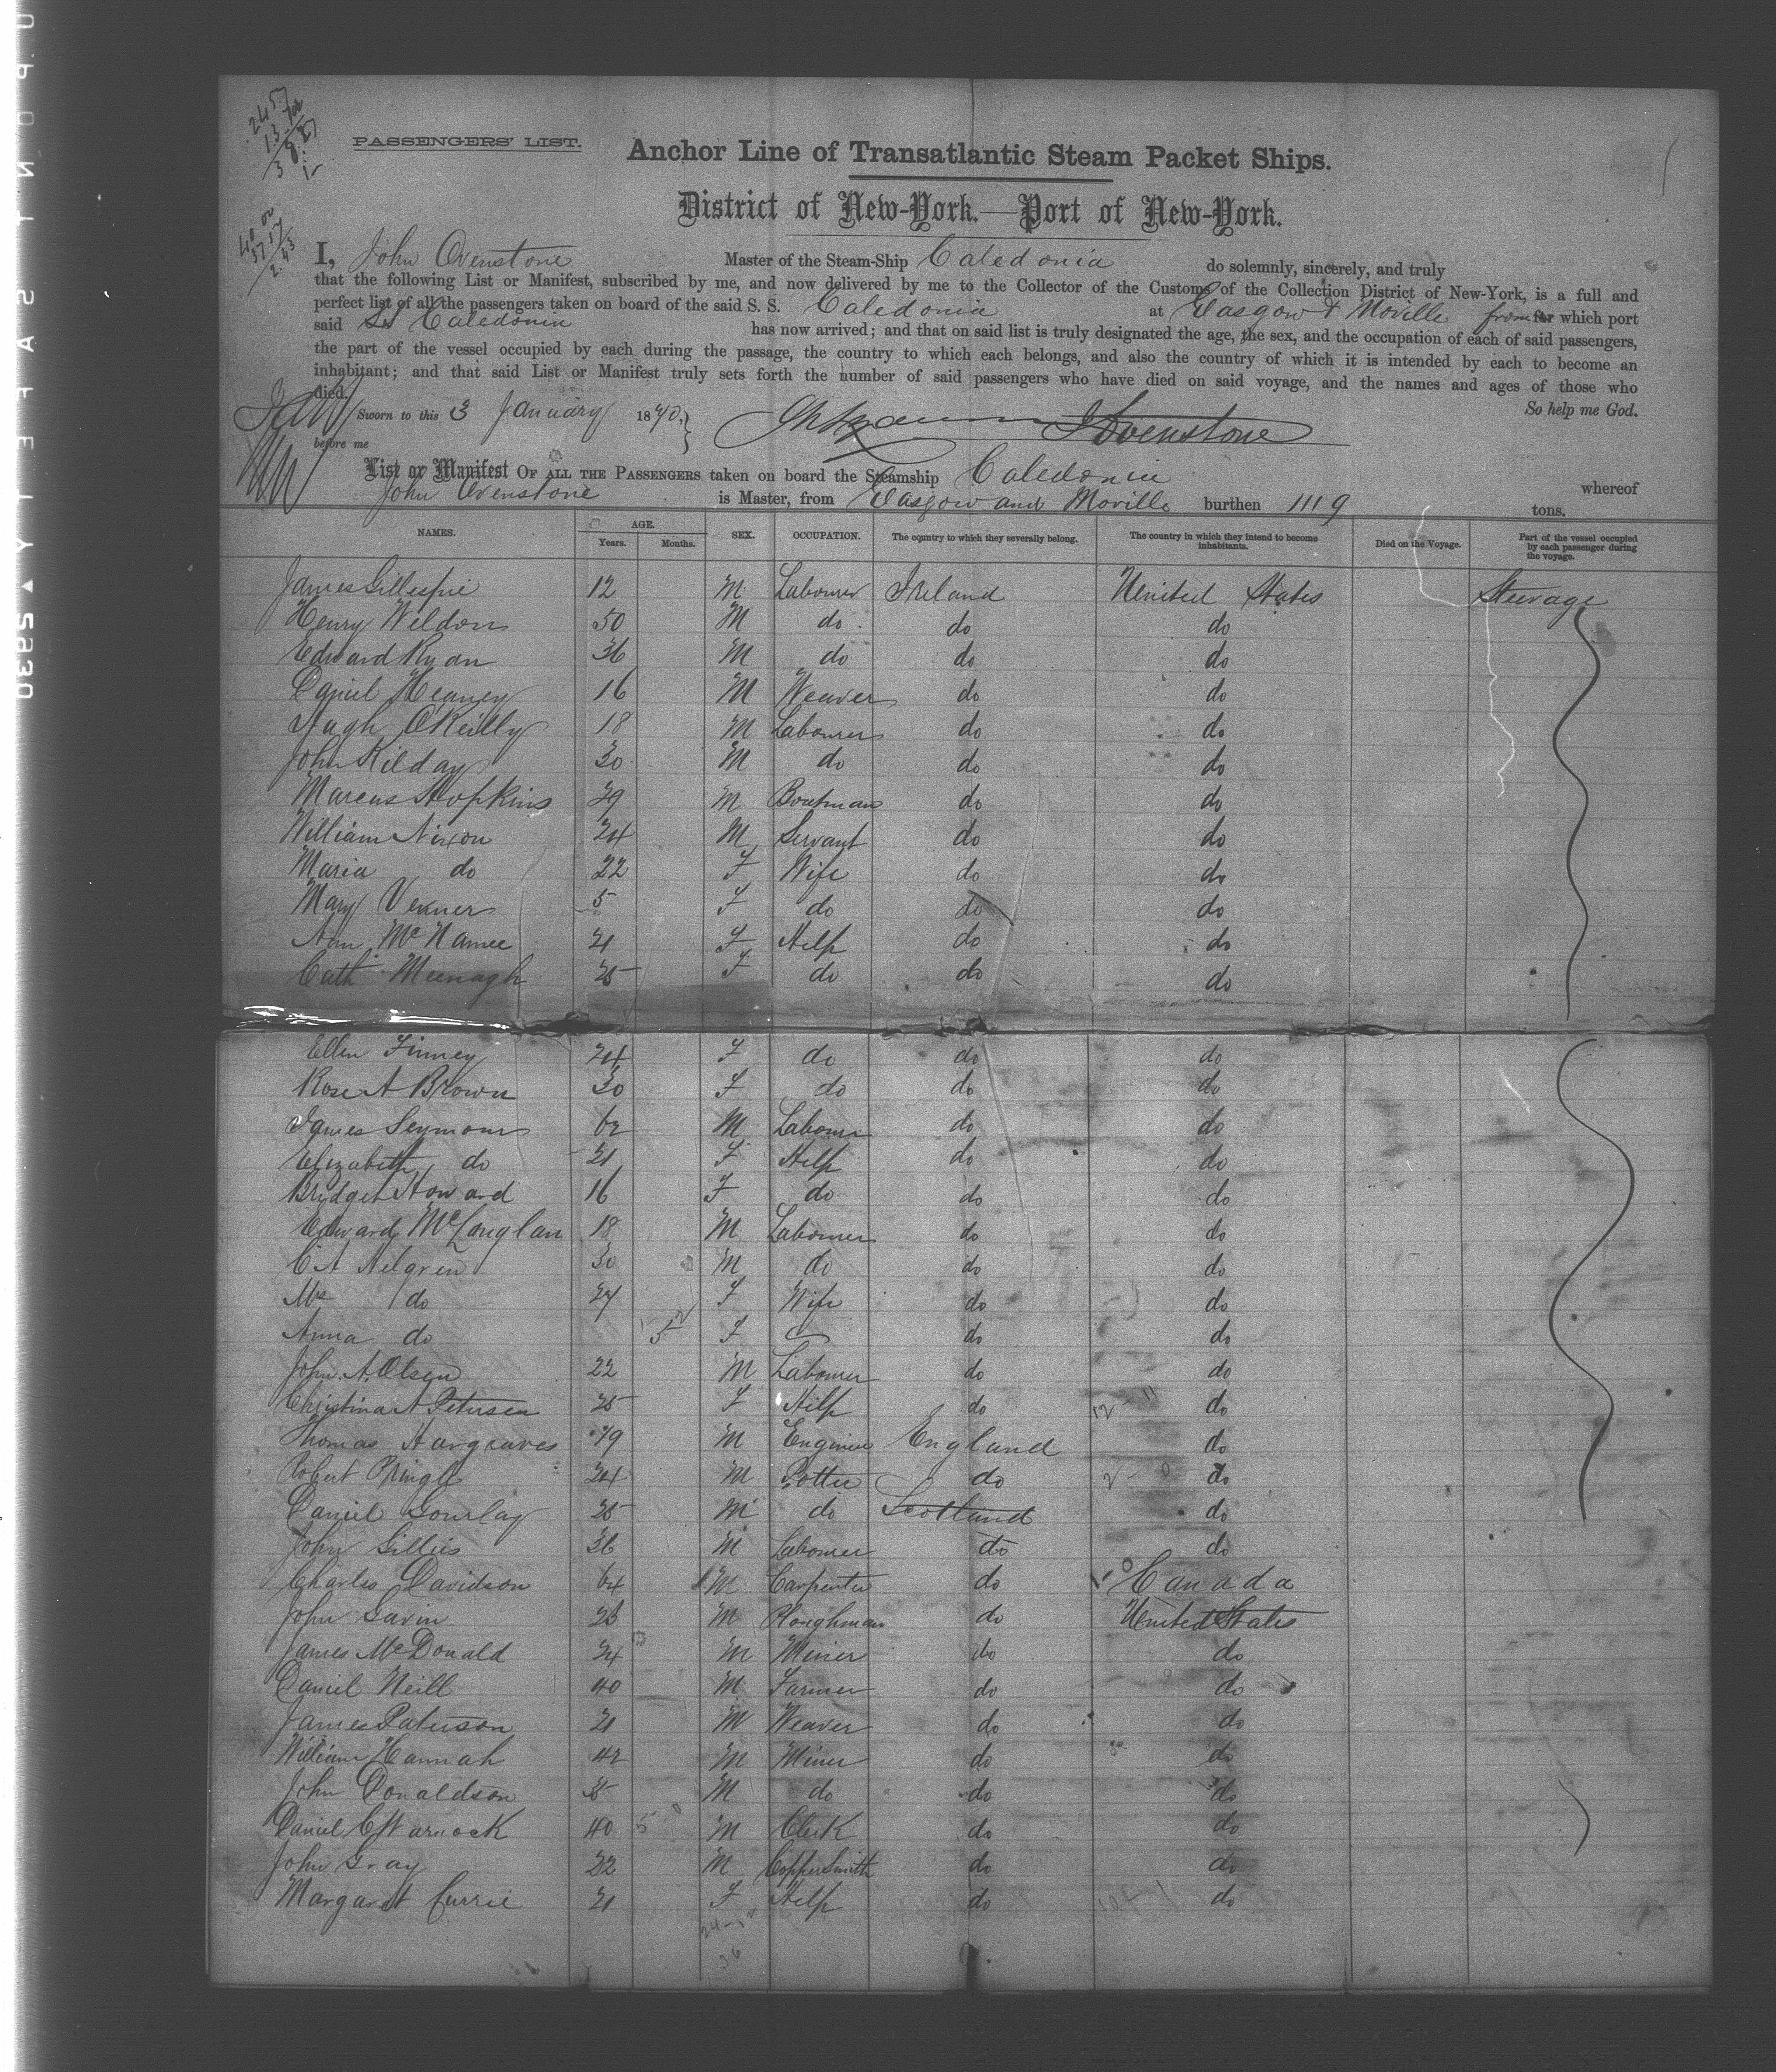 PASSENGERS' LIST.
Anchor Line of Transatlantic Steam Packet Ships.
District of New-York.—Port of New-York.
I, John Ovenstone Master of the Steam-Ship Caledonia do solemnly, sincerely, and truly
that the following List or Manifest, subscribed by me, and now delivered by me to the Collector of the Customs of the Collection District of New-York, is a full and
perfect list of all the passengers taken on board of the said S. S. Caledonia at Glasgow & Moville from which port
said SS Caledonia has now arrived; and that on said list is truly designated the age, the sex, and the occupation of each of said passengers,
the part of the vessel occupied by each during the passage, the country to which each belongs, and also the country of which it is intended by each to become an
inhabitant; and that said List or Manifest truly sets forth the number of said passengers who have died on said voyage, and the names and ages of those who
died. So help me God.
Sworn to this 3 January 1870.
before me
J Ovenstone
List or Manifest OF ALL THE PASSENGERS taken on board the Steamship Caledonia whereof
John Ovenstone is Master, from Glasgow and Moville burthen 1119 tons.
NAMES. AGE. Years. Months. SEX. OCCUPATION. The country to which they severally belong. The country in which they intend to become inhabitants. Died on the Voyage. Part of the vessel occupied by each passenger during the voyage.
James Gillespie 12 M Labourer Ireland United States Steerage
Henry Weldon 50 M do do do
Edward Ryan 36 M do do do
Daniel Heaney 16 M Weaver do do
Hugh O'Reilly 18 M Labourer do do
John Kilday 30 M do do do
Marcus Hopkins 29 M Boatman do do
William Nixon 24 M Servant do do
Maria do 22 F Wife do do
Mary Verner 5 F do do do
Ann McNamee 21 F Help do do
Cath Meenagh 25 F do do do
Ellen Finney 24 F do do do
Rose A Brown 30 F do do do
James Seymour 62 M Labourer do do
Elizabeth do 21 F Help do do
Bridget Howard 16 F do do do
Edward McLouglan 18 M Labourer do do
C A Nelgren 30 M do do do
Mrs do 27 F Wife do do
Anna do 5 F do do
John A. Olsen 22 M Labourer do do
Christina A Petersen 25 F Help do do
Thomas Hargraves 49 M Engineer England do
Robert Pringle 24 M Potter do do
Daniel Gourlay 25 M do Scotland do
John Gillies 36 M Labourer do do
Charles Davidson 64 M Carpenter do Canada
John Gavin 23 M Ploughman do United States
James McDonald 24 M Miner do do
Daniel Neill 40 M Farmer do do
James Paterson 21 M Weaver do do
William Hannah 42 M Miner do do
John Donaldson 35 M do do do
Daniel C Warnock 40 M Clerk do do
John Gray 22 M CopperSmith do do
Margaret Currie 21 F Help do do